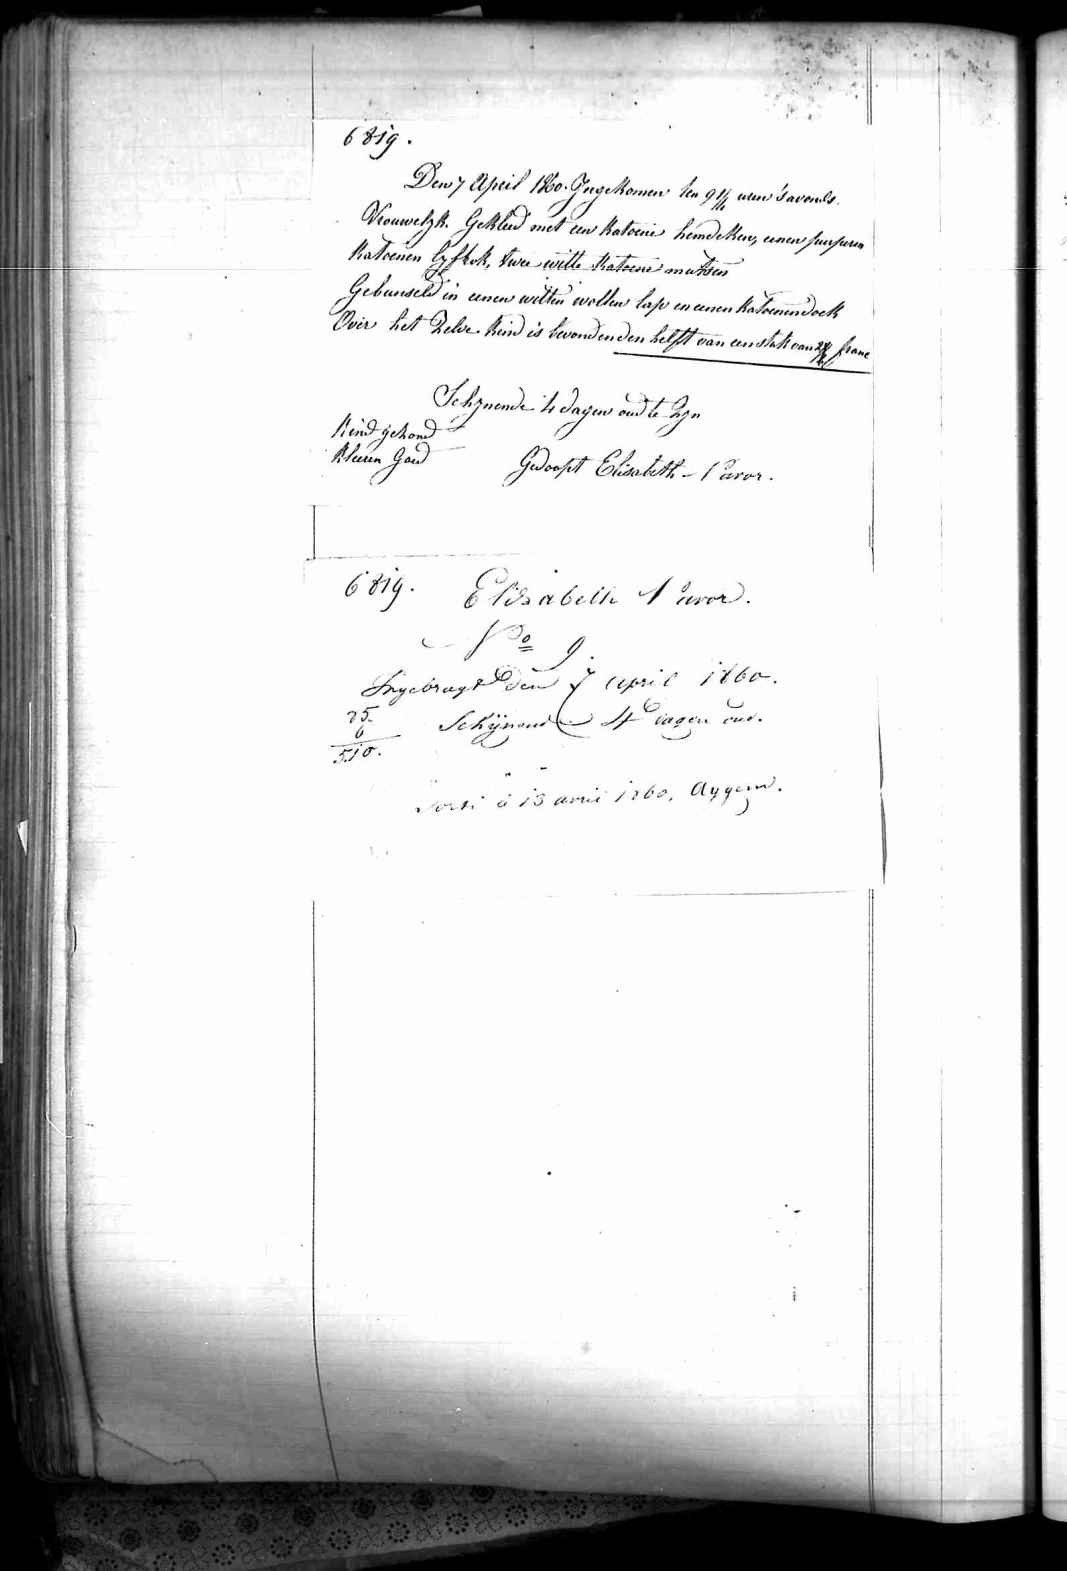 6819.
Den 7 April 1860. Ingekomen ten 9 1/4 uren 's avonds.
Vrouwelyk. Gekleed met een katoene hemdeken, eenen purperen
katoenen lyfrok, twee witte katoene mutsen
Gebunseld in eenen witten wollen lap en eenen katoenen doek
Over het zelve kind is bevonden den helft van een stuk van 2 1/2 franc
Schynende 4 dagen oud te zyn
Kind gezond
Kleeren Goed
Gedoopt Elisabeth - Pavor.
6819. Elisabeth Pavor.
No 9.
Ingebragt den 7 april 1860.
85. Schijnende 4 dagen oud.
6
510.
Sorti à 13 avril 1860, Aygem.